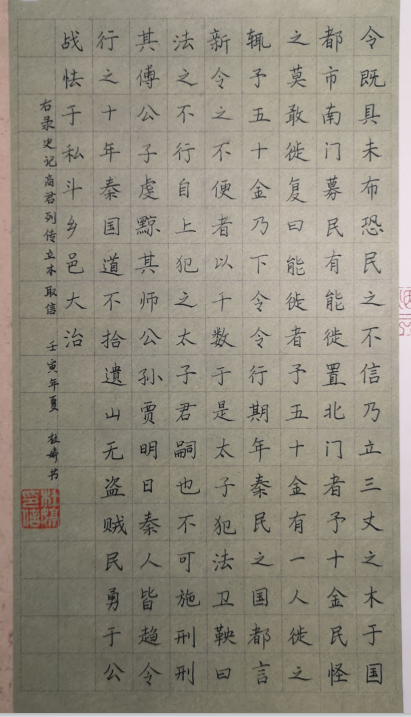 令既具未布恐民之不信乃立三丈之木于国
都市南门募民有能徙置北门者予十金民怪
之莫敢徙复曰能徙者予五十金有一人徙之
辄予五十金乃下令令行期年秦民之国都言
新令之不便者以千数于是太子犯法卫鞅曰
法之不行自上犯之太子君嗣也不可施刑刑
其傅公子虔黥其师公孙贾明日秦人皆趋令
行之十年秦国道不拾遗山无盗贼民勇于公
战怯于私斗乡邑大治
右录史记商君列传立木取信 壬寅年夏 杜婷书